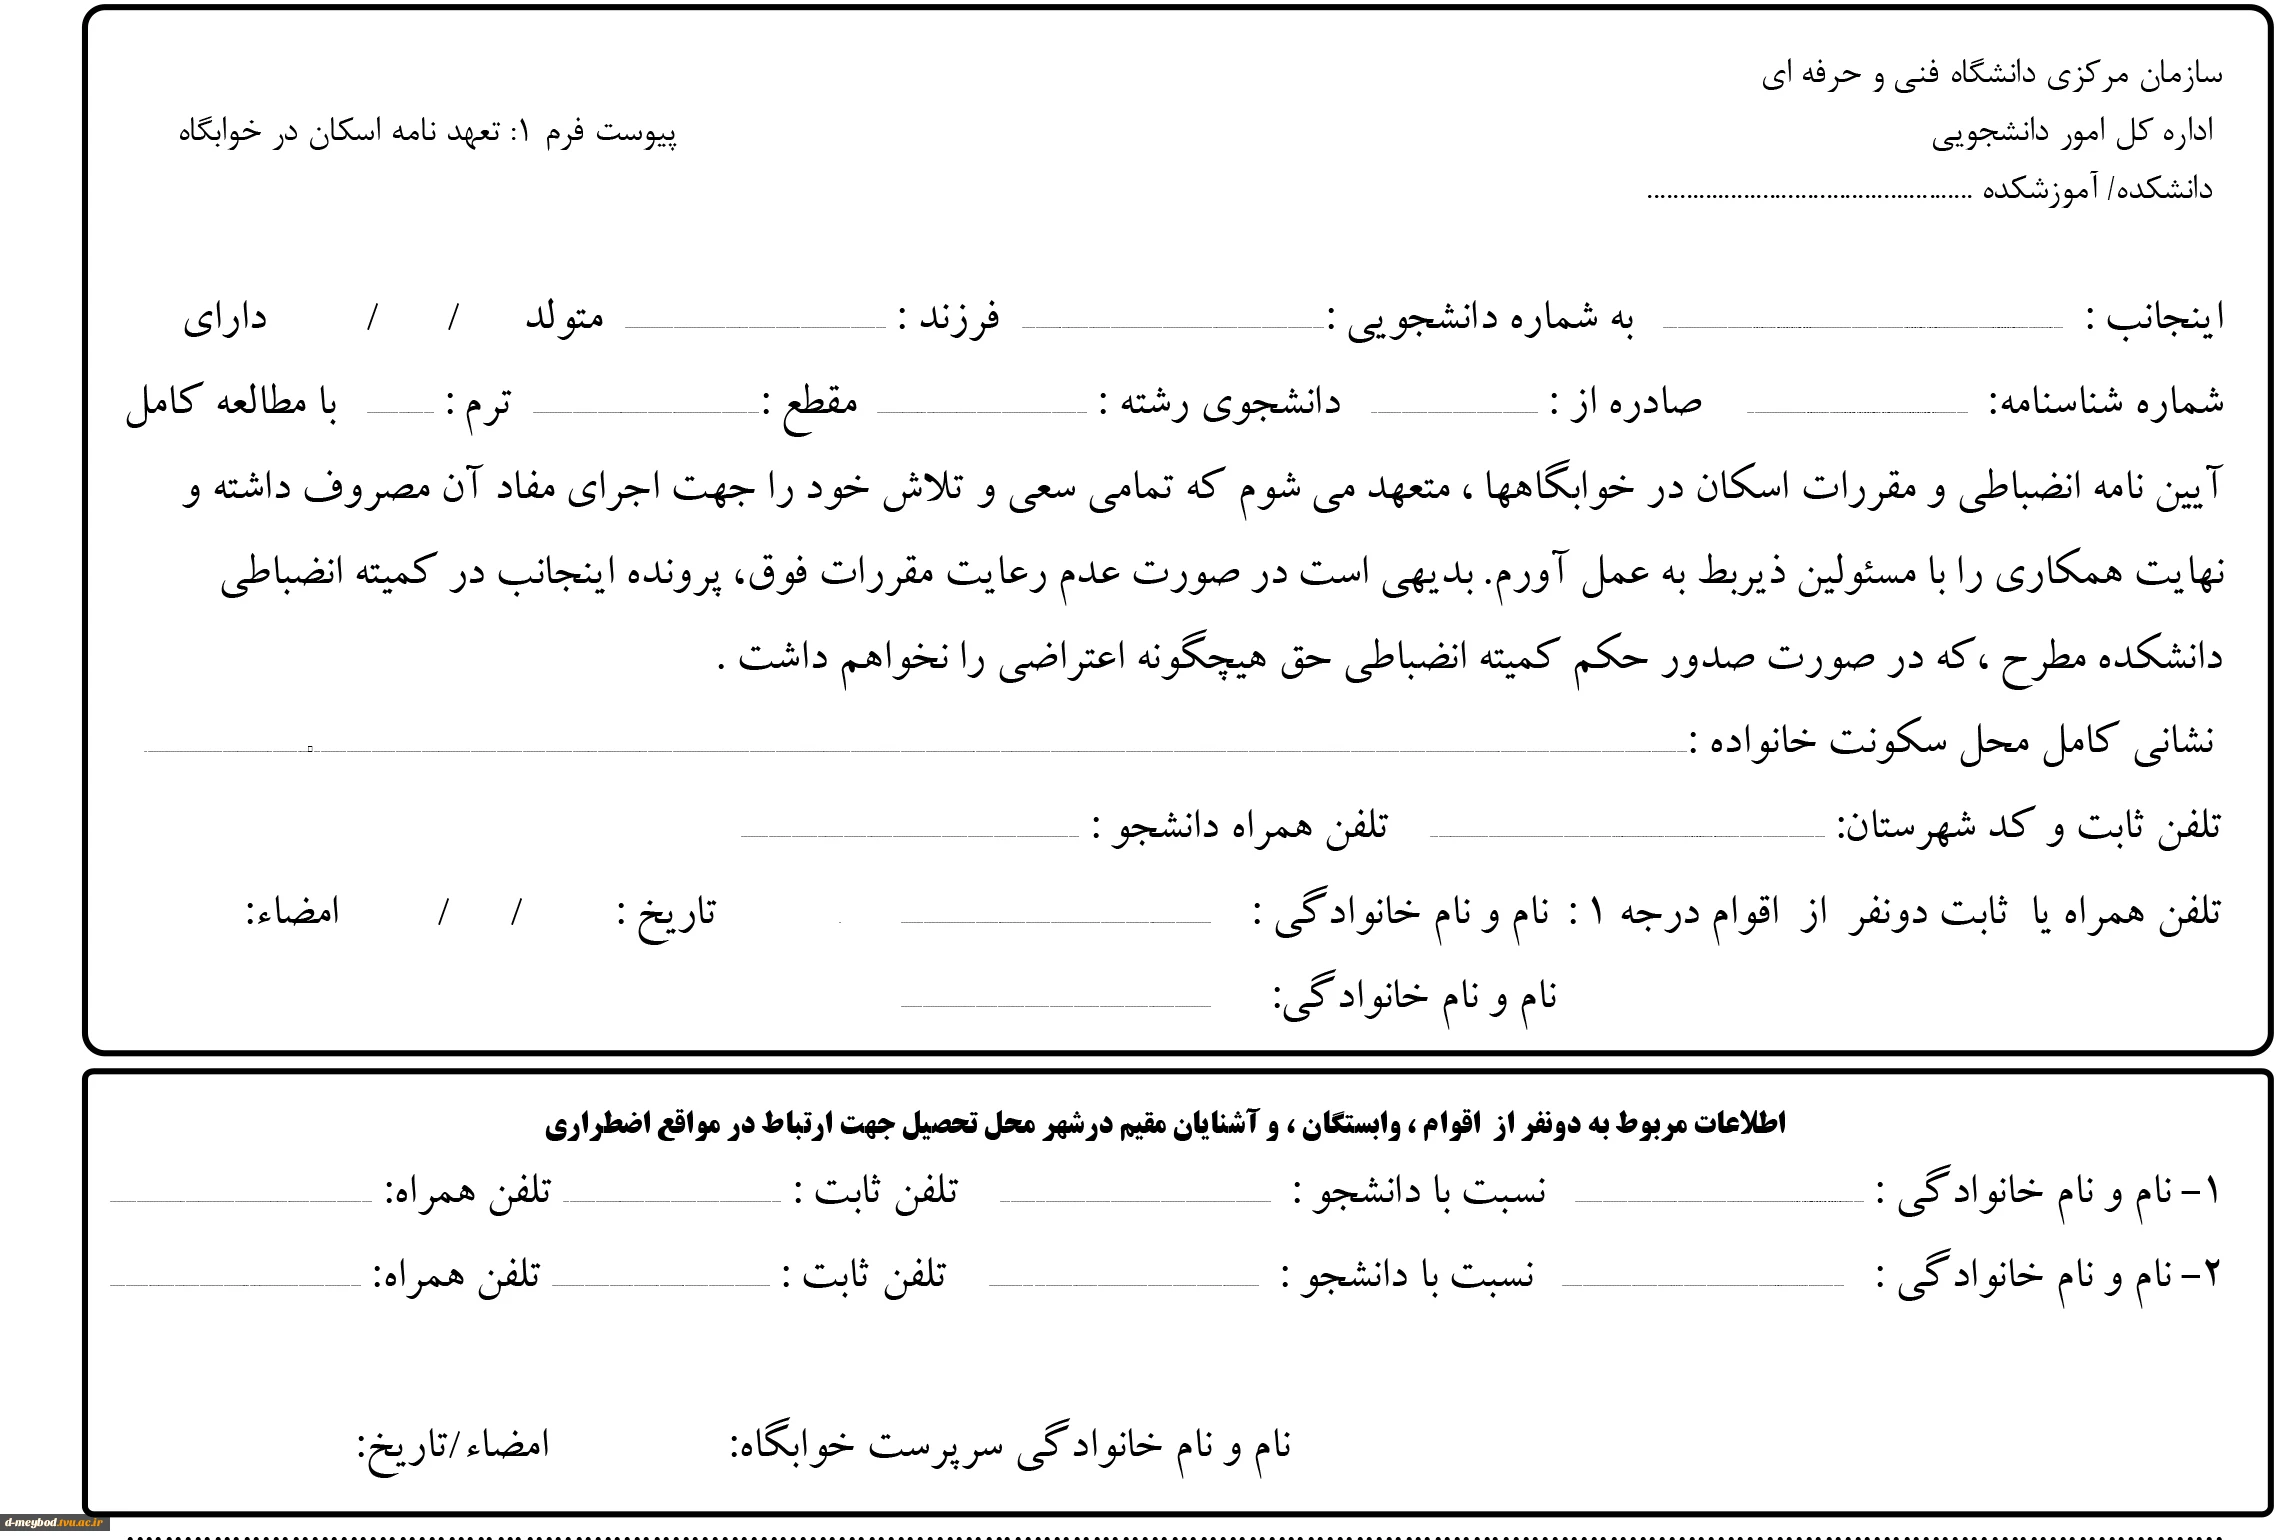 سازمان مرکزی دانشگاه فنی و حرفه ای
اداره کل امور دانشجویی
پیوست فرم ۱: تعهد نامه اسکان در خوابگاه
دانشکده/ آموزشکده ...................................................
اینجانب : به شماره دانشجویی : فرزند : متولد / / دارای
شماره شناسنامه: صادره از : دانشجوی رشته : مقطع : ترم : با مطالعه کامل
آیین نامه انضباطی و مقررات اسکان در خوابگاهها ، متعهد می شوم که تمامی سعی و تلاش خود را جهت اجرای مفاد آن مصروف داشته و
نهایت همکاری را با مسئولین ذیربط به عمل آورم. بدیهی است در صورت عدم رعایت مقررات فوق، پرونده اینجانب در کمیته انضباطی
دانشکده مطرح ،که در صورت صدور حکم کمیته انضباطی حق هیچگونه اعتراضی را نخواهم داشت .
نشانی کامل محل سکونت خانواده :
تلفن ثابت و کد شهرستان: تلفن همراه دانشجو :
تلفن همراه یا ثابت دونفر از اقوام درجه ۱ : نام و نام خانوادگی : تاریخ : / / امضاء:
نام و نام خانوادگی:
اطلاعات مربوط به دونفر از اقوام ، وابستگان ، و آشنایان مقیم درشهر محل تحصیل جهت ارتباط در مواقع اضطراری
۱- نام و نام خانوادگی : نسبت با دانشجو : تلفن ثابت : تلفن همراه:
۲- نام و نام خانوادگی : نسبت با دانشجو : تلفن ثابت : تلفن همراه:
نام و نام خانوادگی سرپرست خوابگاه: امضاء/تاریخ:
d-meybod.tvu.ac.ir